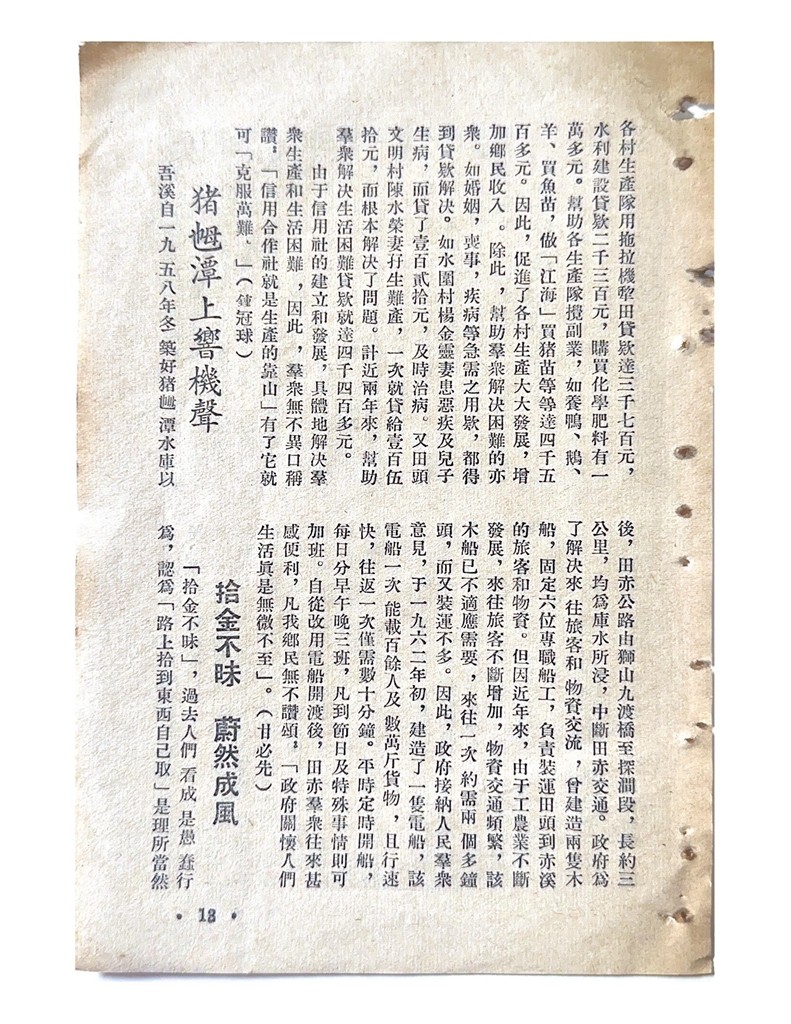 各村生產隊用拖拉機犂田貸欵達三千七百元，
水利建設貸欵二千三百元，購買化學肥料有一
萬多元。幫助各生產隊攪副業，如養鴨、鵝、
羊、買魚苗，做「江海」買猪苗等等達四千五
百多元。因此，促進了各村生產大大發展，增
加鄉民收入。除此，幫助羣衆解决困難的亦
衆。如婚姻，喪事，疾病等急需之用欵，都得
到貸欵解决。如水圍村楊金靈妻患惡疾及兒子
生病，而貸了壹百貳拾元，及時治病。又田頭
文明村陳水榮妻孖生難產，一次就貸給壹百伍
拾元，而根本解决了問題。計近兩年來，幫助
羣衆解决生活困難貸欵就達四千四百多元。
由于信用社的建立和發展，具體地解决羣
衆生產和生活困難，因此，羣衆無不異口稱
讚：「信用合作社就是生產的靠山」有了它就
可「克服萬難。」（鍾冠球）
猪乸潭上響機聲
吾溪自一九五八年冬築好猪乸潭水庫以
後，田赤公路由獅山九渡橋至探澗段，長約三
公里，均爲庫水所浸，中斷田赤交通。政府爲
了解决來往旅客和物資交流，曾建造兩隻木
船，固定六位專職船工，負責裝運田頭到赤溪
的旅客和物資。但因近年來，由于工農業不斷
發展，來往旅客不斷增加，物資交通頻繁，該
木船已不適應需要，來往一次約需兩個多鐘
頭，而又裝運不多。因此，政府接納人民羣衆
意見，于一九六二年初，建造了一隻電船，該
電船一次能載百餘人及數萬斤貨物，且行速
快，往返一次僅需數十分鐘。平時定時開船，
每日分早午晚三班，凡到節日及特殊事情則可
加班。自從改用電船開渡後，田赤羣衆往來甚
感便利，凡我鄉民無不讚頌：「政府關懷人們
生活眞是無微不至」。（甘必先）
拾金不昧　蔚然成風
「拾金不昧」，過去人們看成是愚蠢行
爲，認爲「路上拾到東西自己取」是理所當然
• 13 •